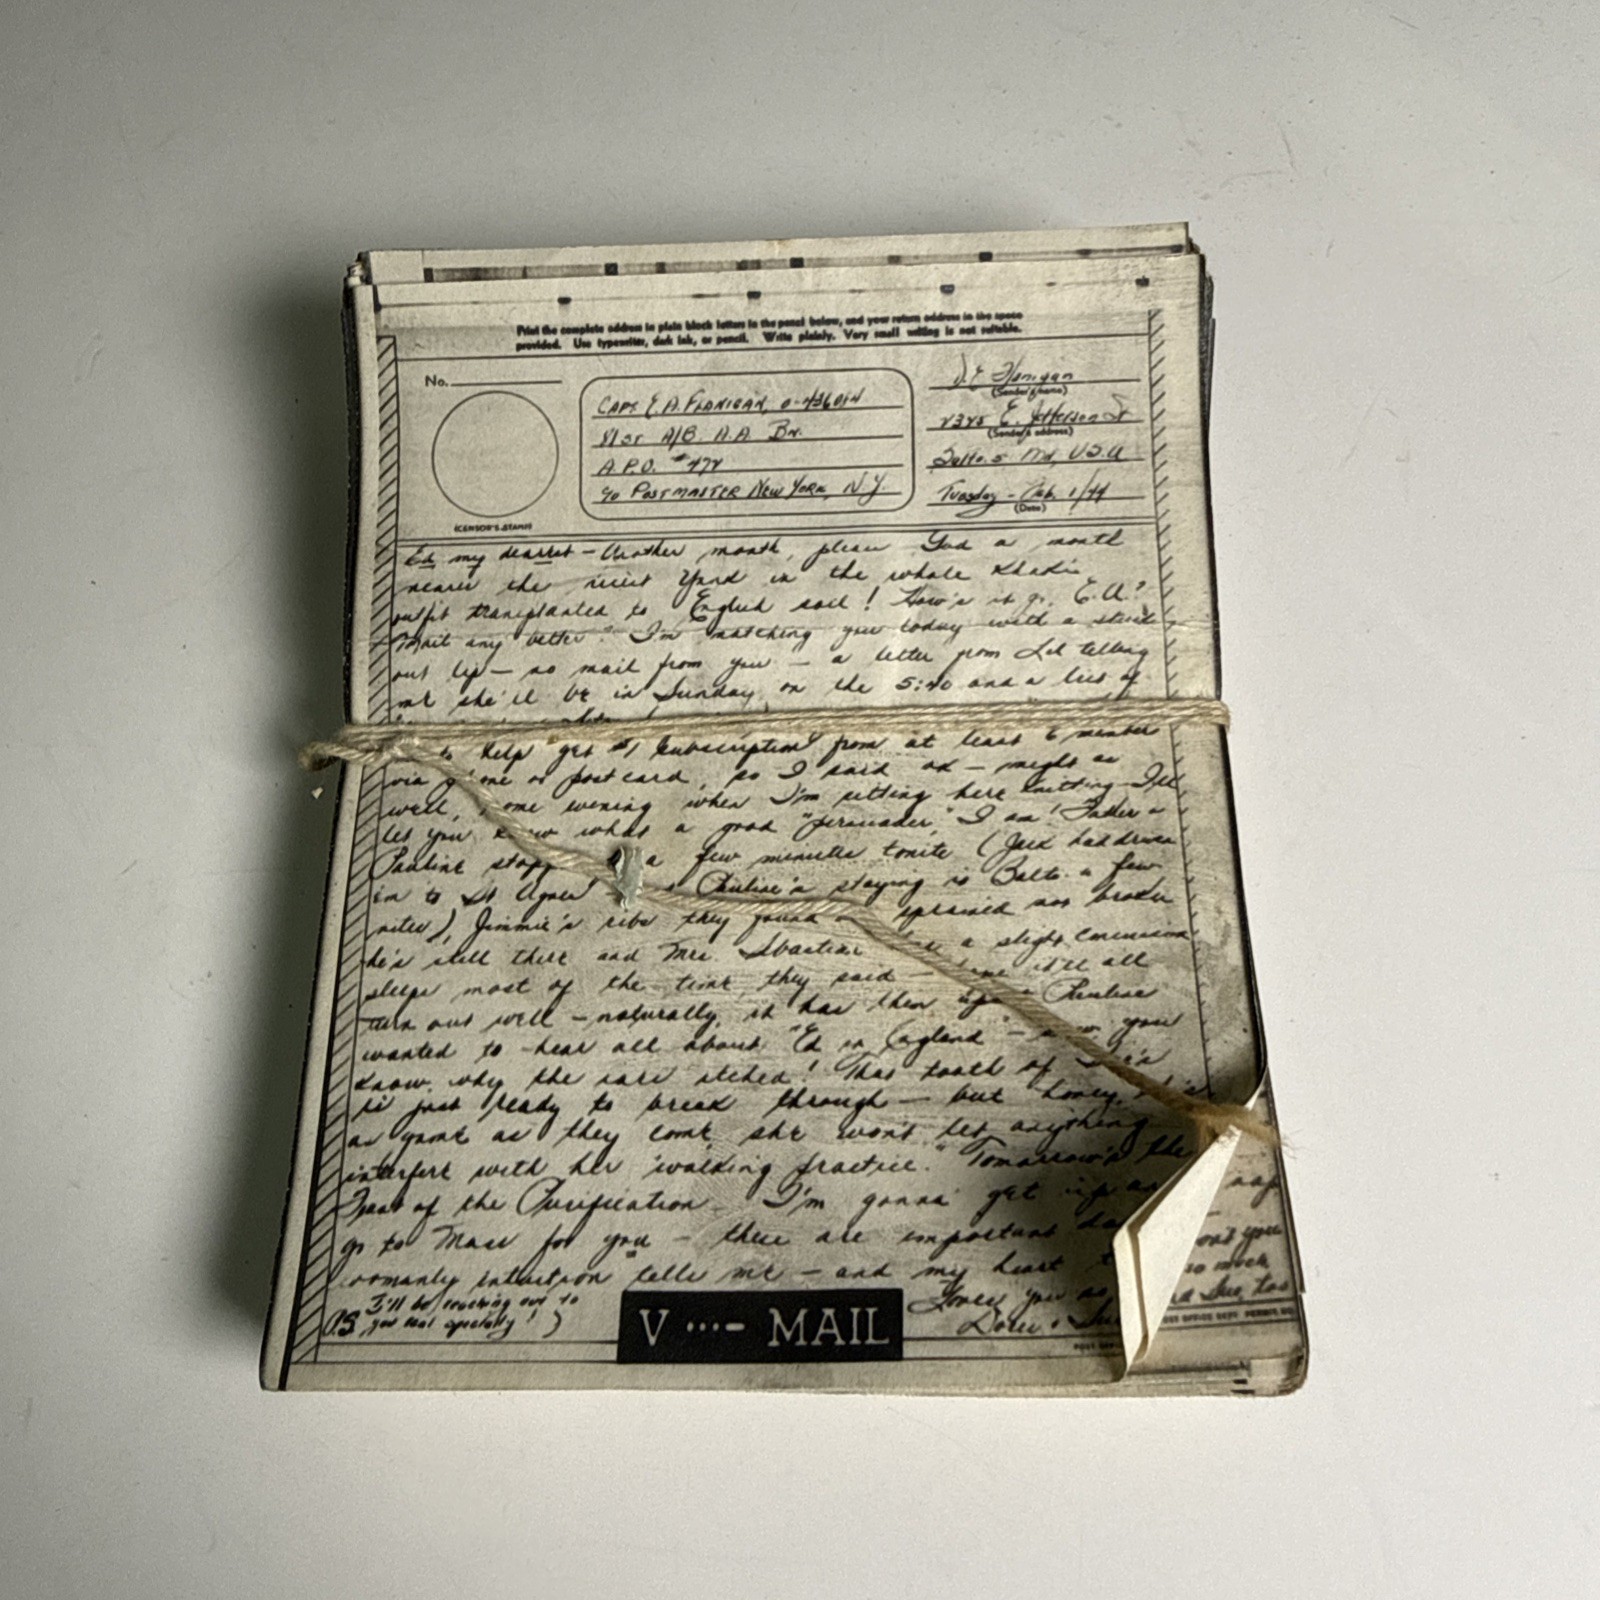 Print the complete address in plain block letters in the panel below, and your return address in the space
provided. Use typewriter, dark ink, or pencil. Write plainly. Very small writing is not suitable.
No.
(CENSOR'S STAMP)
CAPT E. A. FLANIGAN, O-436014
81st A/B. A.A. Bn.
A.P.O. #472
c/o POSTMASTER NEW YORK, N.Y.
Flanigan
(Sender's name)
E. Jefferson St
(Sender's address)
Balto. 5 Md, U.S.A
Tuesday - Feb. 1/44
(Date)
Ed my dearest - Another month, please God a month
nearer the in the whole
outfit transplanted to English soil! How's it go, E.A.?
Mail any better? I'm matching you today with a stuck
out lip - no mail from you - a letter from telling
me she'll be in Sunday on the 5:40 and a list of
to help get subscriptions from at least 6 members
via or postcard, so I said ok - might as
well, some evening when I'm sitting here knitting I'll
let you know what a good "persuader" I am! Father &
Pauline a few minutes tonite (Jack had driven
in to St Agnes & Pauline's staying in Balto. a few
nites), Jimmie's ribs they found sprained not broken
he's still there and Mrs. a slight concussion
sleeps most of the time, they said - it'll all
turn out well - naturally, it has them - Pauline
wanted to hear all about "Ed in England" - now you
know why the ears itched! That tooth of Sue's
is just ready to break through - but honey, she's
as game as they come, she won't let anything
interfere with her "walking practice." Tomorrow's the
Feast of the Purification. I'm gonna get up and
go to Mass for you - these are important
womanly intuition tells me - and my heart
P.S. I'll be reaching out to
you real specially!)
Loves you so
so much
Sue too
V ···- MAIL